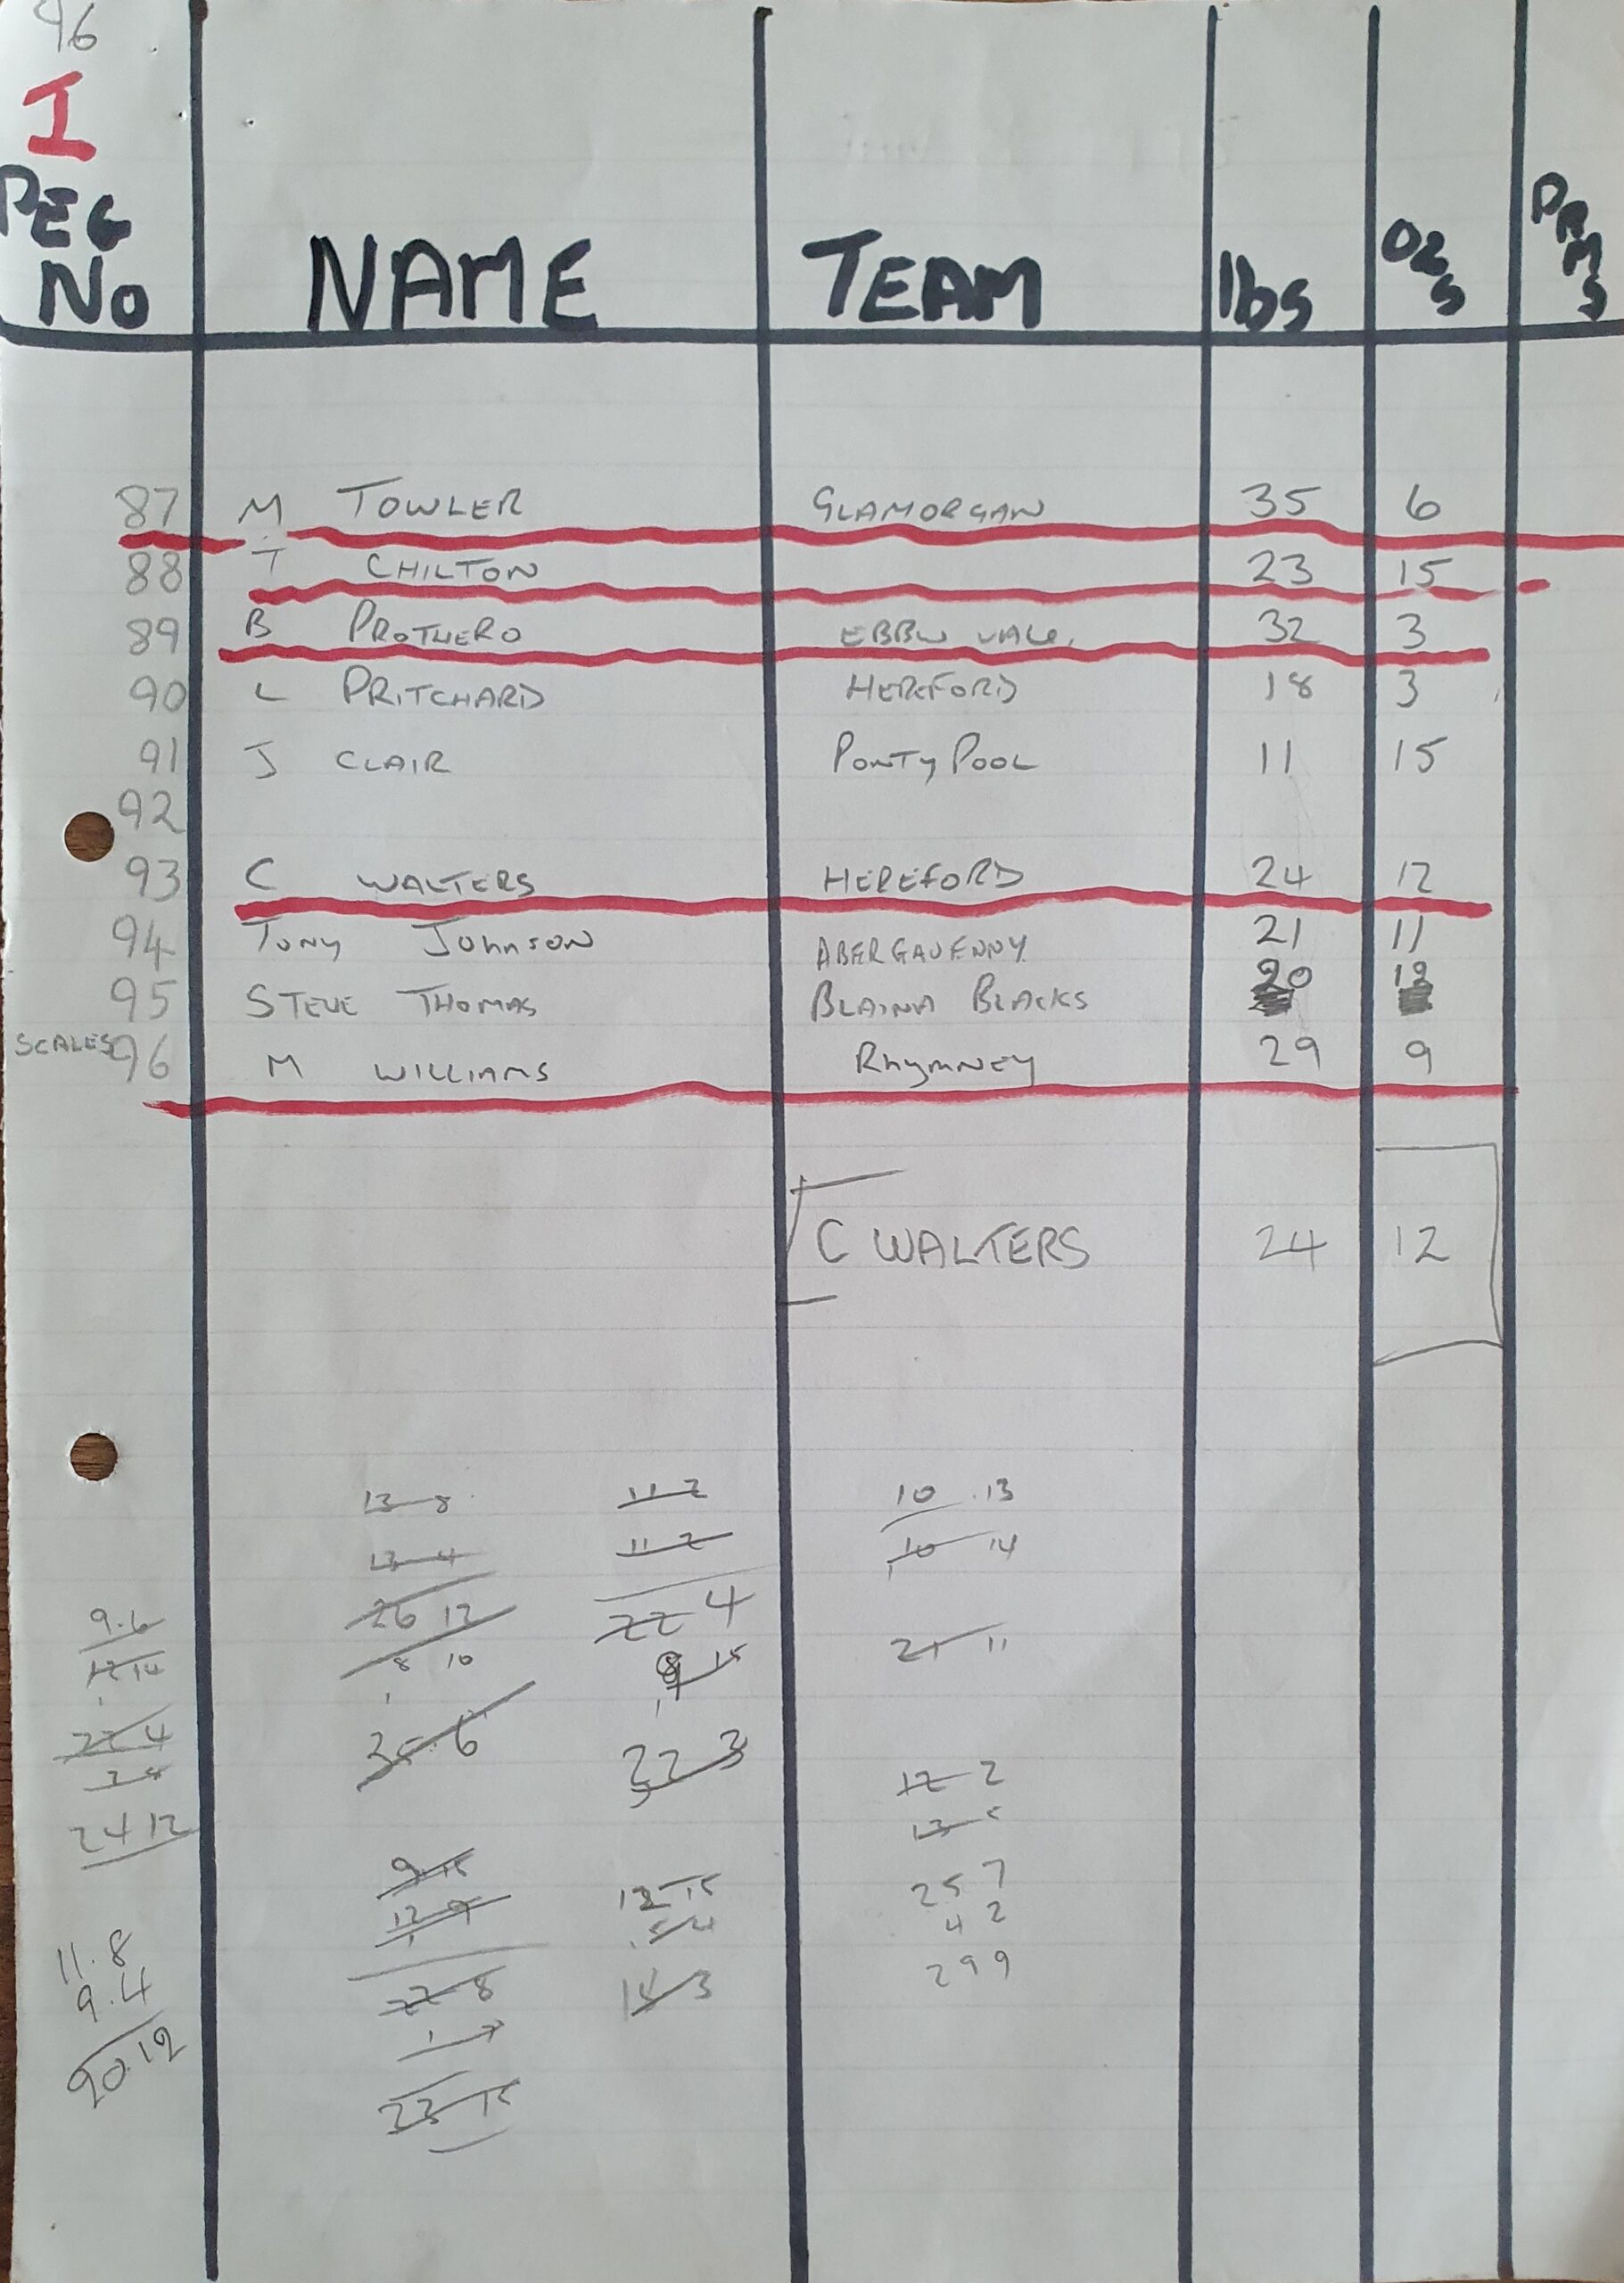 96
I
PEG No NAME TEAM lbs ozs DRMS
87 M TOWLER GLAMORGAN 35 6
88 T CHILTON 23 15
89 B PROTHERO EBBW VALE. 32 3
90 L PRITCHARD HEREFORD 18 3
91 J CLAIR PONTYPOOL 11 15
92
93 C WALTERS HEREFORD 24 12
94 TONY JOHNSON ABERGAVENNY 21 11
95 STEVE THOMAS BLAINA BLACKS 20 12
SCALES 96 M WILLIAMS Rhymney 29 9
C WALTERS 24 12
13 8 11 2 10 13
13 4 11 2 10 14
26 12 22 4 21 11
8 10 9 15
35 6 32 3
9.6
12 14
22 4
2 8
24 12
12 2
13 5
25 7
4 2
29 9
9 15
12 9
22 8
1 7
23 15
12 15
5 4
18 3
11.8
9.4
20.12